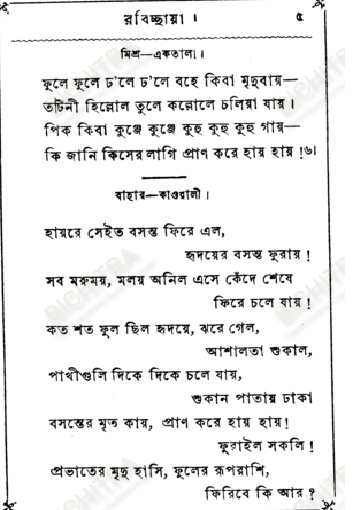 রবিচ্ছায়া ॥ ৫
মিশ্র—একতালা ॥
ফুলে ফুলে ঢ'লে ঢ'লে বহে কিবা মৃদুবায়—
তটিনী হিল্লোল তুলে কল্লোলে চলিয়া যায় ।
পিক কিবা কুঞ্জে কুঞ্জে কুহু কুহু কুহু গায়—
কি জানি কিসের লাগি প্রাণ করে হায় হায় !৬।
বাহার—কাওয়ালী ।
হায়রে সেইত বসন্ত ফিরে এল,
হৃদয়ের বসন্ত ফুরায় !
সব মরুময়, মলয় অনিল এসে কেঁদে শেষে
ফিরে চলে যায় !
কত শত ফুল ছিল হৃদয়ে, ঝরে গেল,
আশালতা শুকাল,
পাখীগুলি দিকে দিকে চলে যায়,
শুকান পাতায় ঢাকা
বসন্তের মৃত কায়, প্রাণ করে হায় হায়!
ফুরাইল সকলি !
প্রভাতের মৃদু হাসি, ফুলের রূপরাশি,
ফিরিবে কি আর ?
BICHITRA